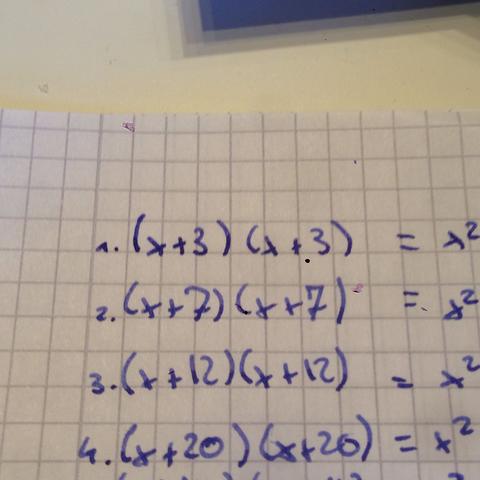 1. (x+3)(x+3) = x²
2. (x+7)(x+7) = x²
3. (x+12)(x+12) = x²
4. (x+20)(x+20) = x²